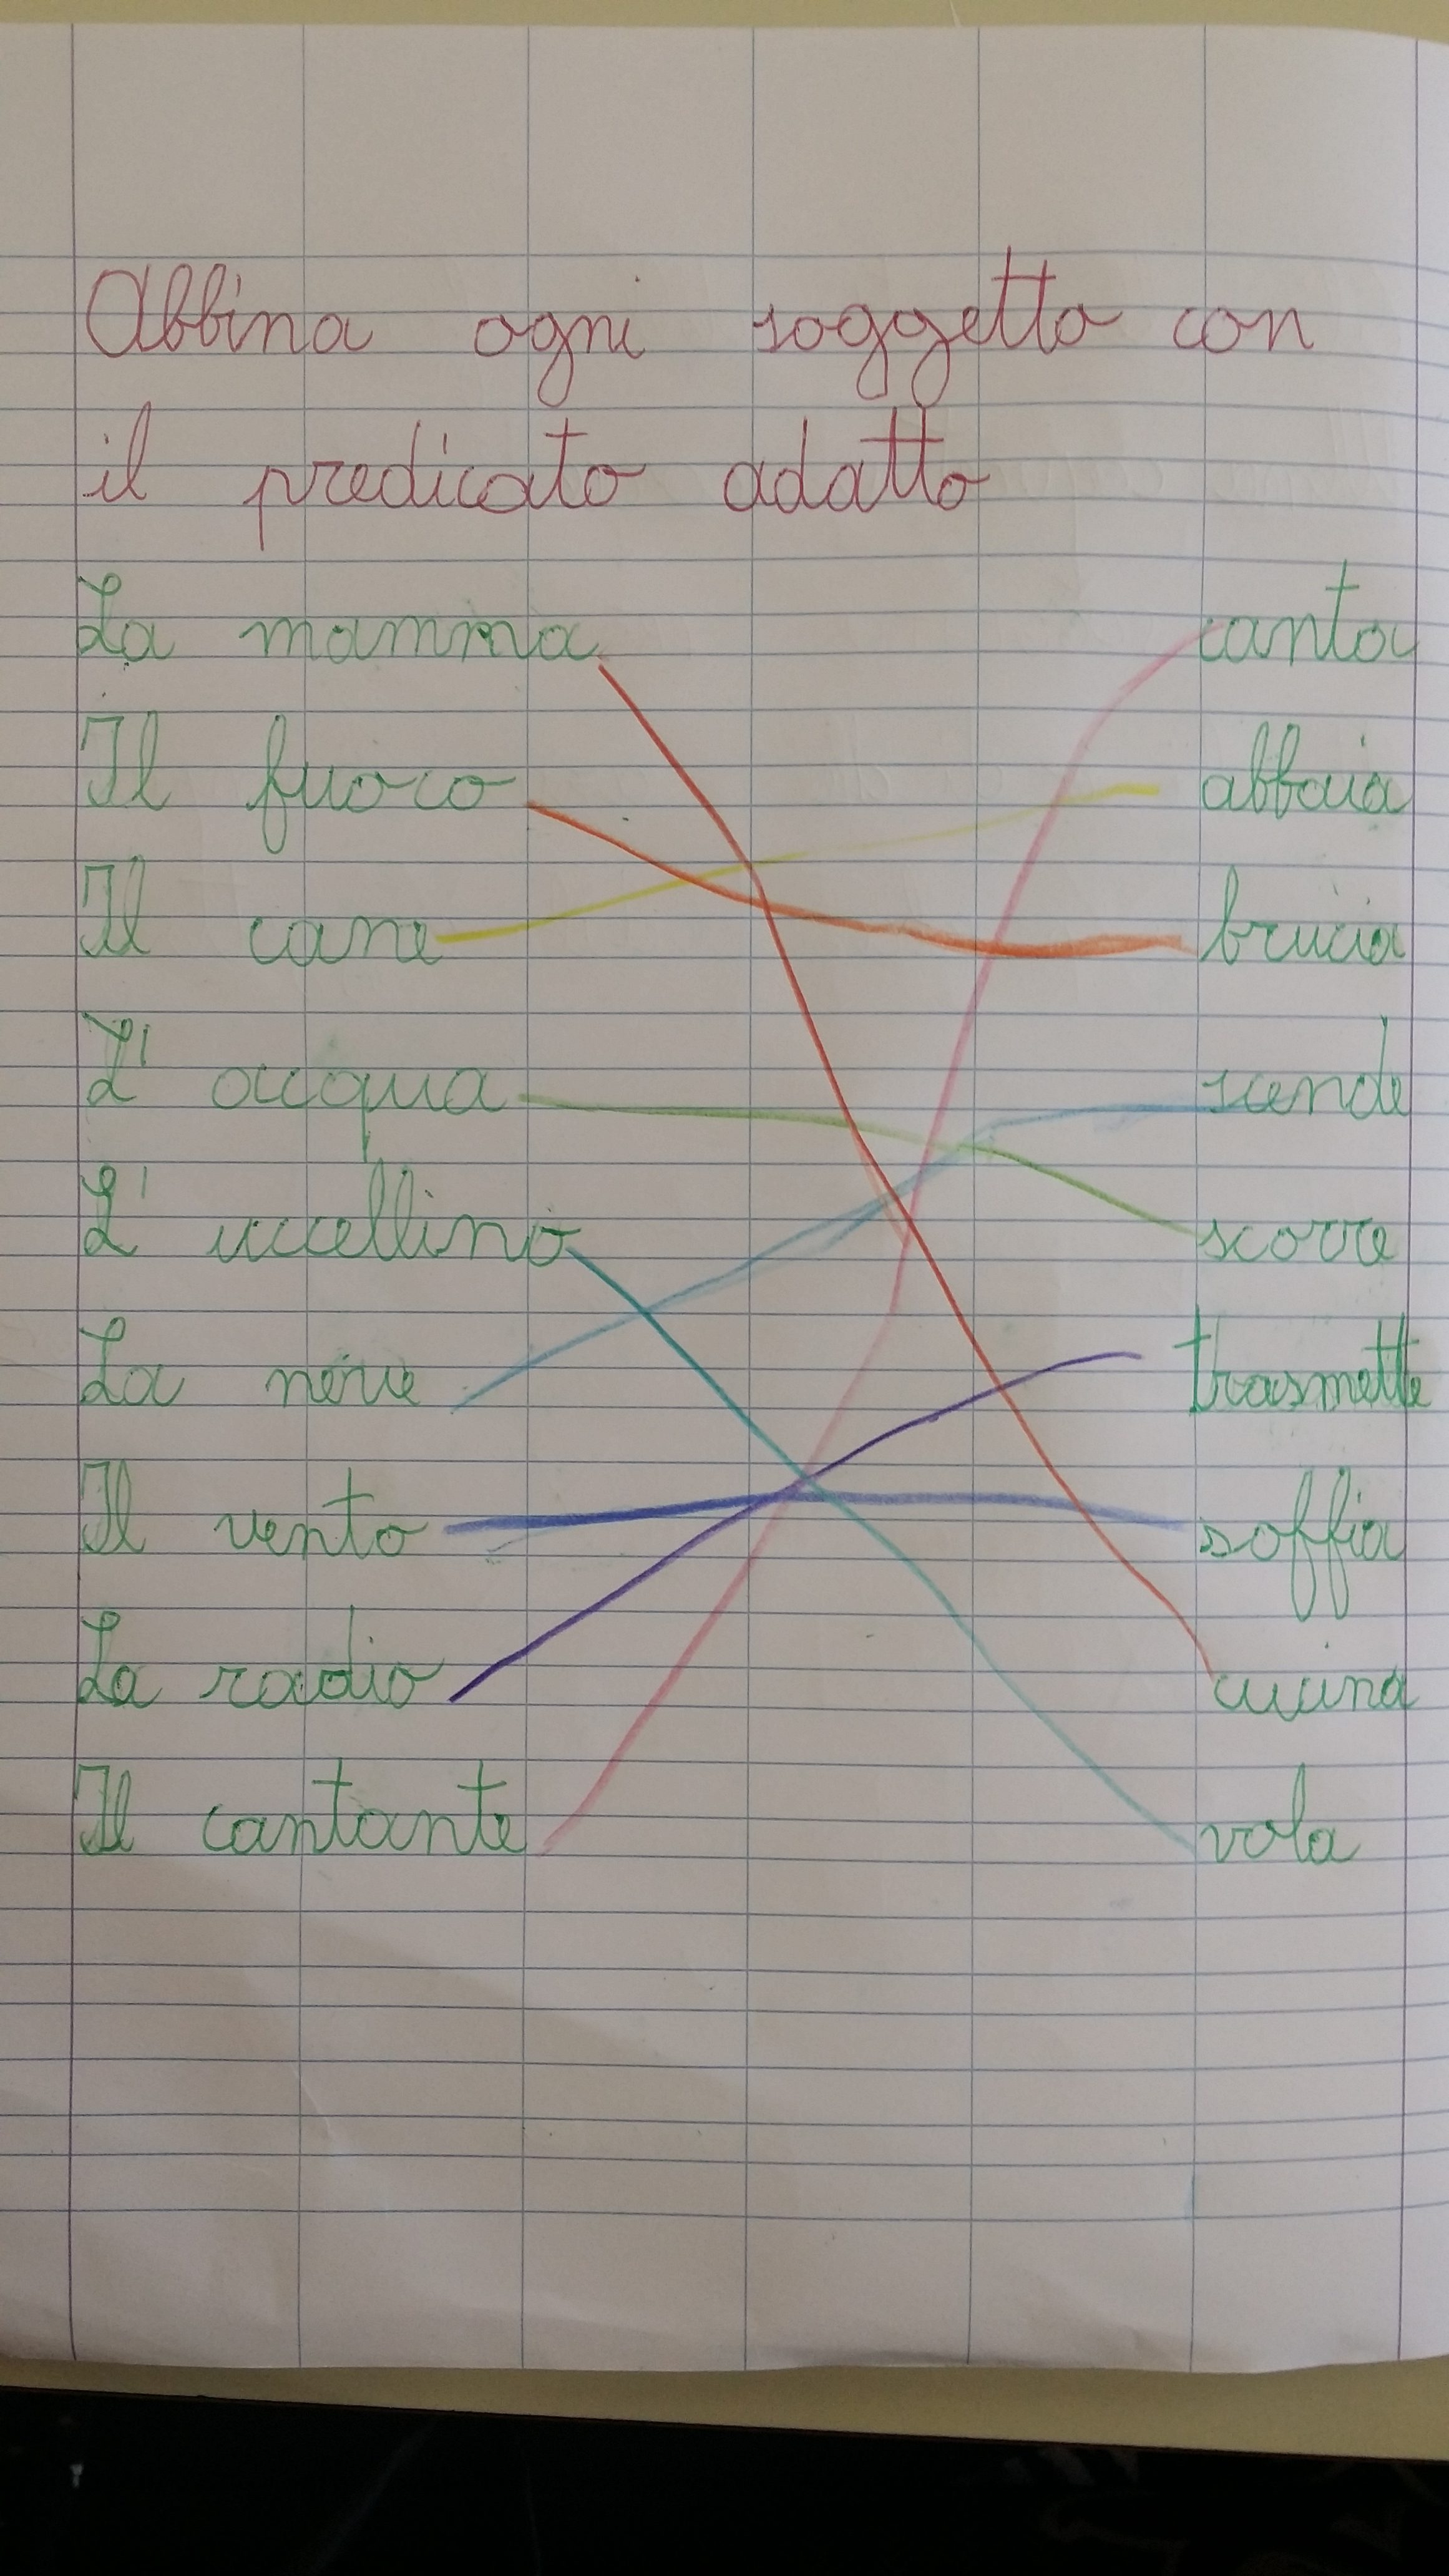 Abbina ogni soggetto con
il predicato adatto
La mamma canta
Il fuoco abbaia
Il cane brucia
L' acqua scende
L' uccellino scorre
La neve trasmette
Il vento soffia
La radio cucina
Il cantante vola